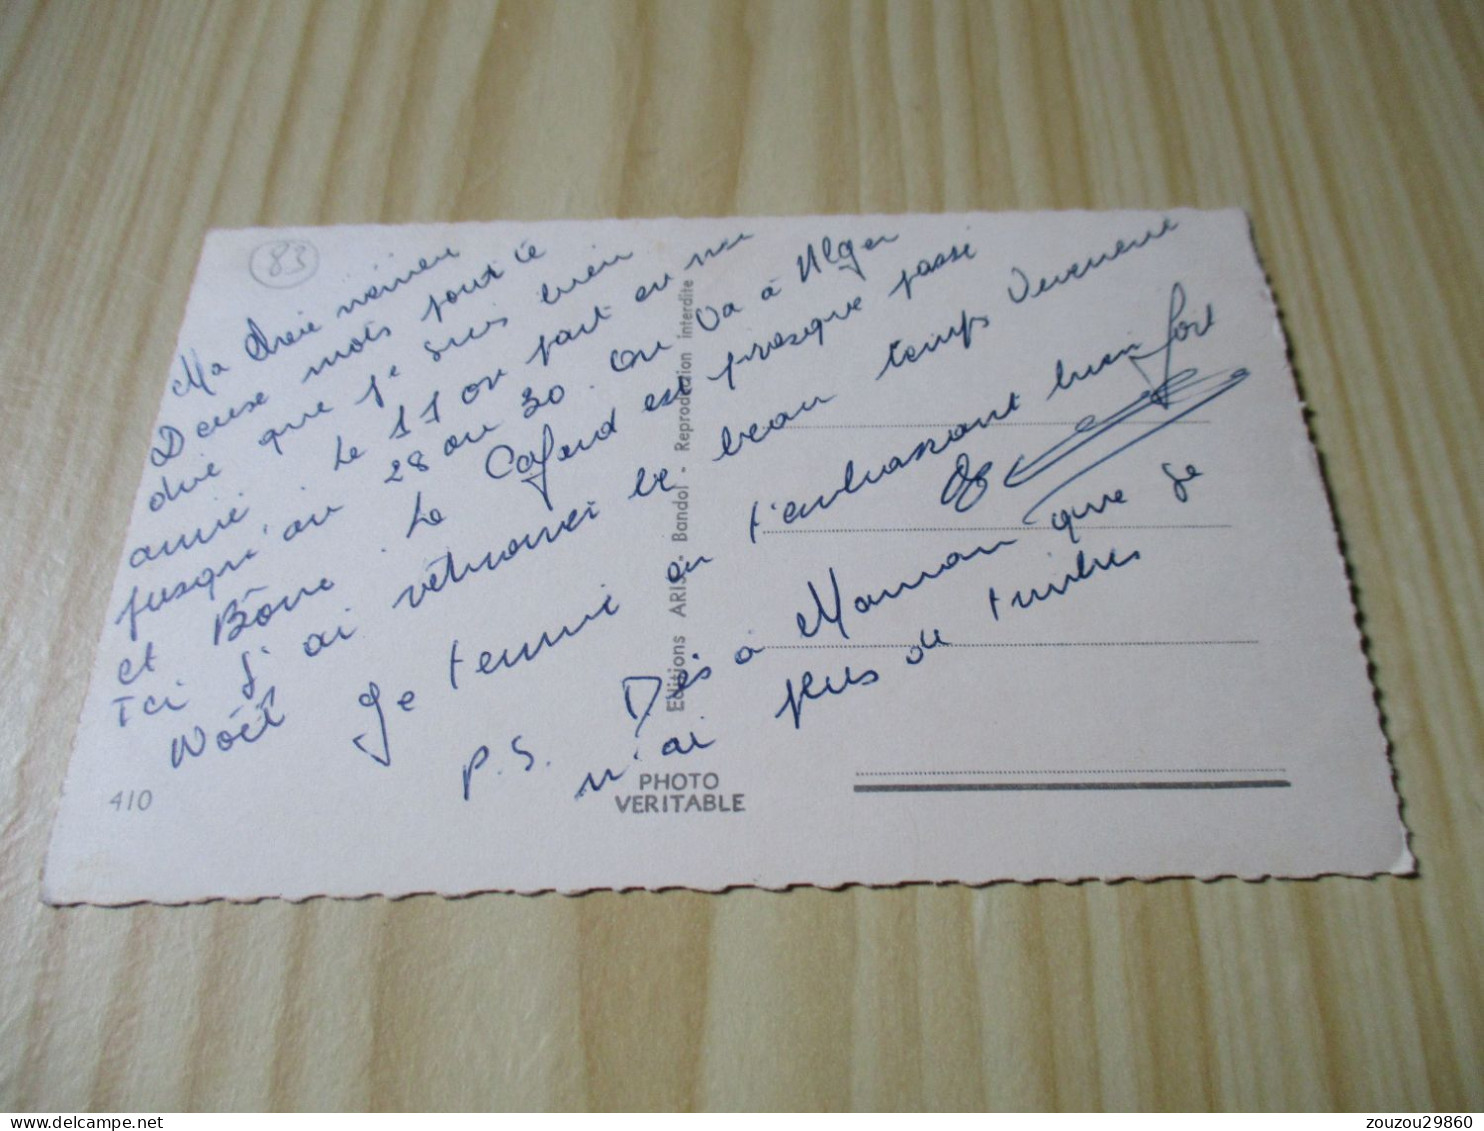 83
Ma chere
Deuse mots pour te
dire que je suis bien
arrivé le 11 on part en mer
jusqu'au 28 ou 30. on va à Alger
et Bône. Le Cafard est presque passé
Ici j'ai retrouvé le beau temps Vivement
Noël Je termine en t'embrassant bien fort
P.S. Dis à Maman que je
n'ai plus de timbres
Editions ARIS - Bandol - Reproduction interdite
410
PHOTO
VERITABLE
zouzou29860